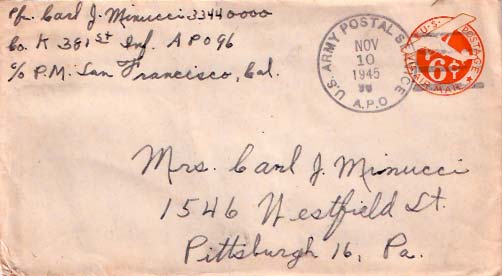 Pfc. Carl J. Minucci 33440000
Co. K 381st Inf. APO 96
c/o P.M. San Francisco, Cal.
U.S. ARMY POSTAL SERVICE
NOV
10
1945
A.P.O.
U.S. POSTAGE
6¢
VIA AIR MAIL
Mrs. Carl J. Minucci
1546 Westfield St.
Pittsburgh 16, Pa.